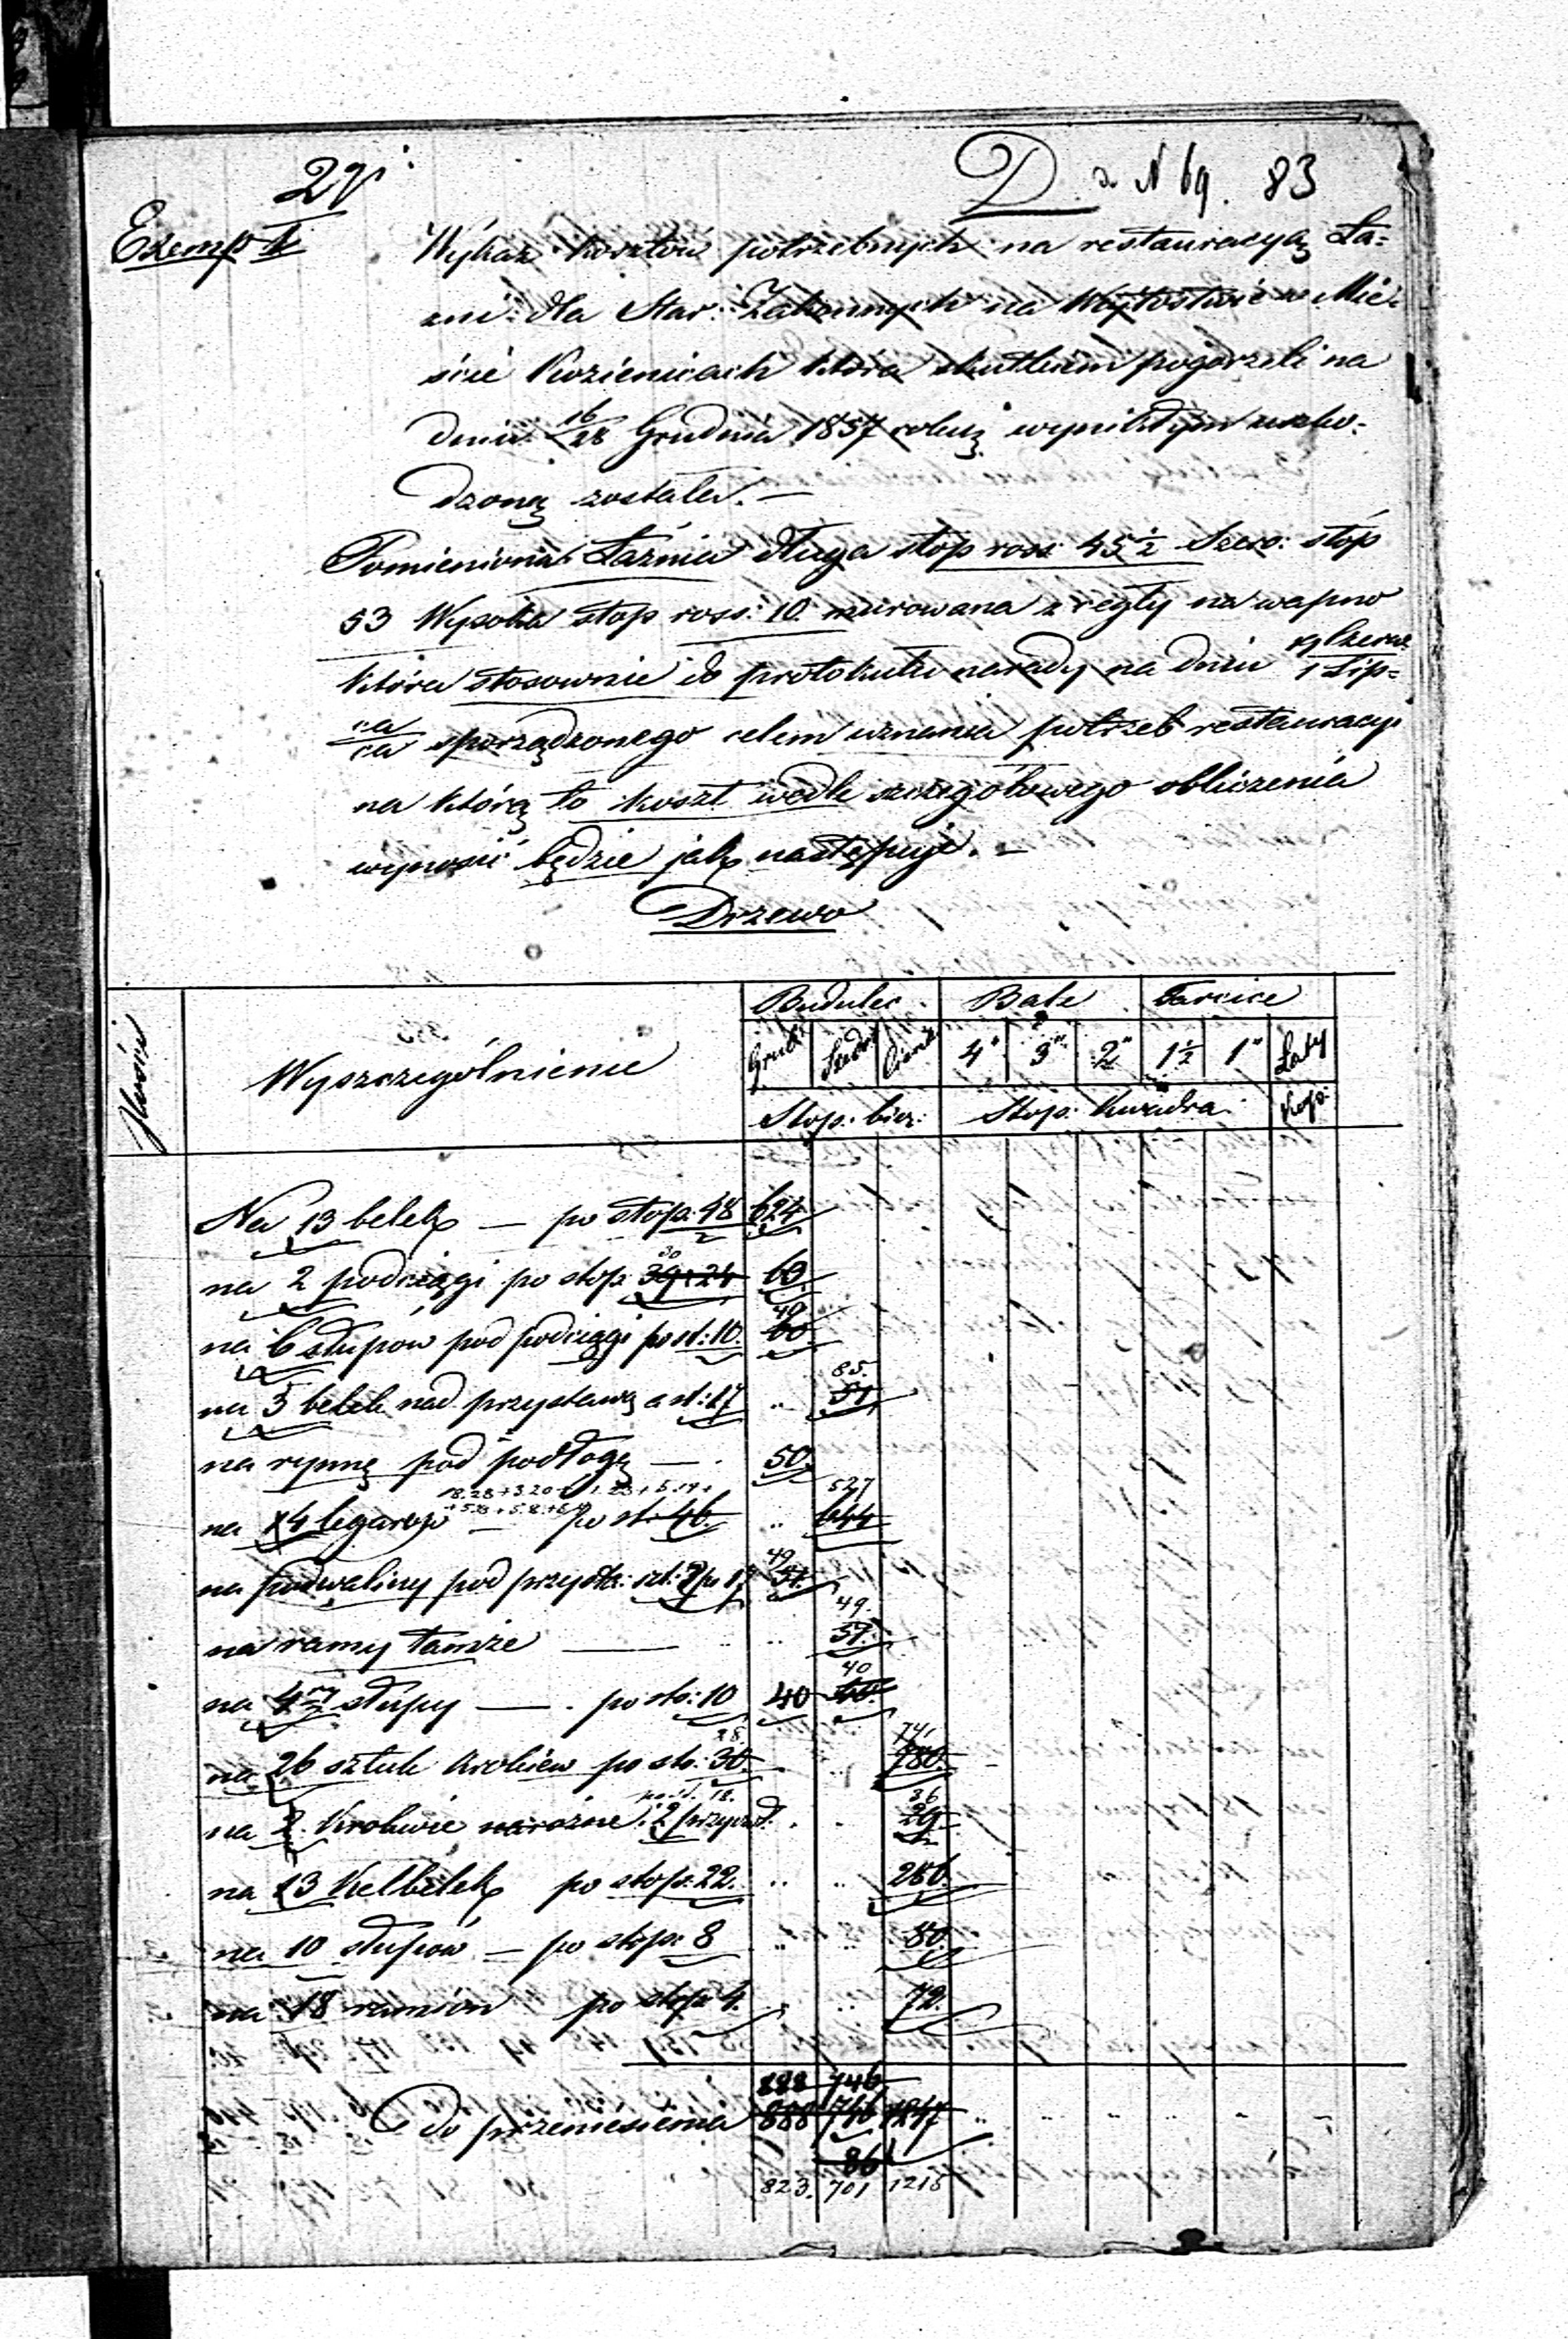 D. a N 69. 83
Exemp
Wykaz kosztów potrzebnych na restauracyą Ła=
zni dla Star: Zakonnych na Wójtostwie w Mie=
ście Kozienicach która skutkiem pogorzeli na
dniu 16/28 Grudnia 1857 roku wynikłym uszko=
dzoną została. —
Pomieniona Łaźnia długa stop ross: 45½ Szer: stóp
53 Wysoka stop ross: 10. murowana z cegły na wapno
która stosownie do protokułu narady na dniu 19 Czerw/1 Lip=
ca/ca sporządzonego celem uznania potrzeb restauracyi
na którą to koszt wedle szczegółowego obliczenia
wynosić będzie jak następuje. —
Drzewo
Wyszczególnienie
Budulec Bale Tarcice
4" 3" 2" 1½ 1" Łaty
Stop: bież: Stop: Kwadra: Kop:
Na 13 belek — po stop: 48 624
30
na 2 podciągi po stop: 39+24 63.
49
na 6 słupów pod podciągi po st: 10. 60
85.
na 5 belek nad przystawą a st: 17 .. 51
na rynnę pod podłogę — 50
527
na 14 legarów — po st: 46. .. 644
49
na podwaliny pod przysta: szt: 51.
49.
na ramy tamże — .. 51.
40
na 4ry słupy — po sto: 10 40
28.
na 26 sztuk krokiew po sto: 30. 780.
36
na 2. Krokwie narożne
na 13 Kelbelek po stop: 22. .. .. 286.
na 10 słupów — po stop: 8 .. .. 80.
na 18 ramion po stop 4. .. 72.
888 746
Do przeniesienia 888 746 1247
861
823. 701 1215